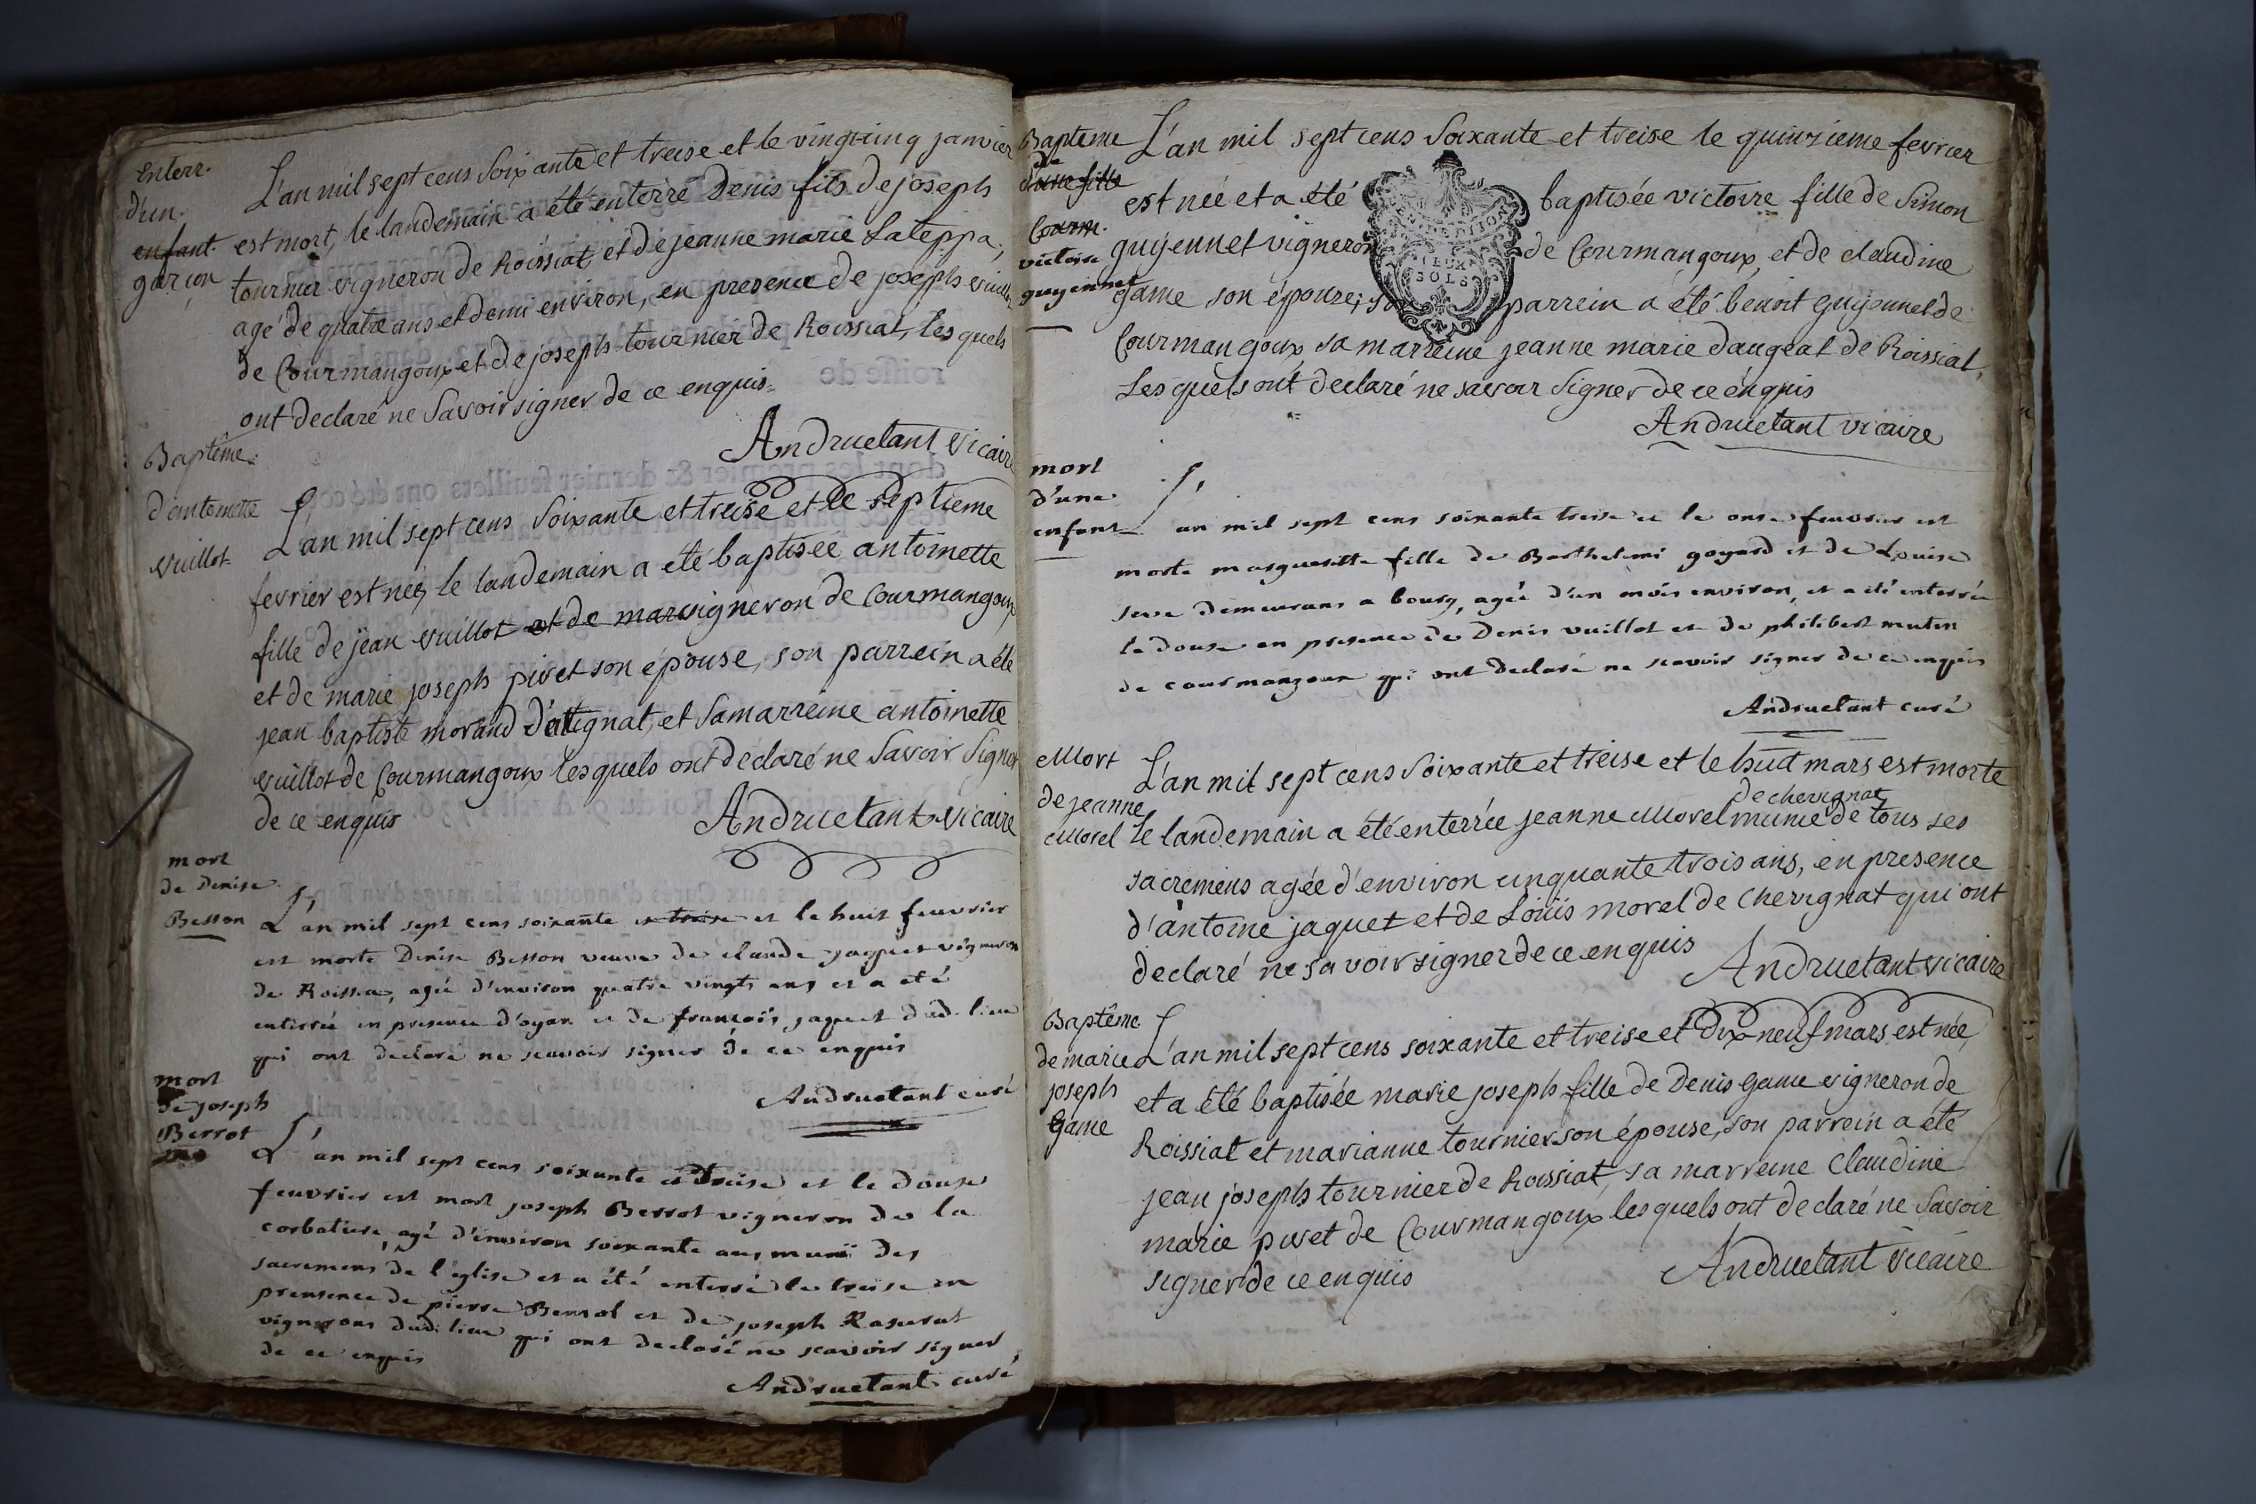 Enterr.
d'un
enfant
garçon
L'an mil sept cens Soixante et treise et le vingtcinq janvier
est mort, le landemain a été enterré Denis fils de joseph
tournier vigneron de Roissiat, et de jeanne marie Lateppa,
agé de quatre ans et demi environ, en presence de joseph vuillot
de Courmangoux et de joseph tournier de Roissiat, les quels
ont declaré ne Savoir signer de ce enquis
Andruetant vicaire
Baptême
d'antoinette
vuillot
L'an mil sept cens Soixante et treise et le septieme
fevrier est née, le landemain a été baptisée antoinette
fille de jean vuillot et de mar vigneron de Courmangoux
et de marie joseph pivet son épouse, son parrein a été
jean baptiste morand d'attignat, et Sa marreine antoinette
vuillot de Courmangoux lesquels ont déclaré ne Savoir Signer
de ce enquis
Andruetant vicaire
mort
de Denise
Besson
L'an mil sept cens soixante et treise et le huit feuvrier
est morte Denise Besson veuve de claude jaquet vigneron
de Roissia, agée d'environ quatre vingts ans et a eté
enterrée en presence d'oyan et de françois jaquet dud. lieu
qui ont declaré ne scavoir signer de ce enquis
Andruetant curé
mort
de joseph
Berrot
L'an mil sept cens soixante et treise et le douse
feuvrier est mort joseph Berrot vigneron de la
corbatiere, agé d'environ soixante ans, muni des
sacremens de l'eglise et a été enterré le treise en
presence de pierre Berrot et de joseph Rasurat
vignerons dud. lieu qui ont declaré ne scavoir signer
de ce enquis
Andruetant curé
Bapteme
de
d'une fille
Courm.
victoire
guyennet
L'an mil sept cens Soixante et treise le quinzieme fevrier
est née et a été baptisée victoire fille de Simon
guyennet vigneron de Courmangoux, et de claudine
game son épouze; son parrein a été benoit guyennet de
Courmangoux, sa marreine jeanne marie daugeat de Roissiat,
Les quels ont declaré ne savoir Signer de ce enquis
DEUX
SOLS
Andruetant vicaire
mort
d'une
enfant
L'an mil sept cens soixante treise et le onse feuvrier est
morte margueritte fille de Barthelemi goyard et de Louise
seve demeurans a bourg, agée d'un mois environ, et a été enterrée
le douse en presence de Denis vuillot et de philibert mutin
de courmangoux qui ont declaré ne scavoir signer de ce enquis
Andruetant curé
Mort
de jeanne
Morel
L'an mil sept cens Soixante et treise et le huit mars est morte
de chevignat
le landemain a été enterrée jeanne Morel munie de tous ses
sacremens agée d'environ cinquante trois ans, en presence
d'antoine jaquet et de Loüis morel de chevignat qui ont
declaré ne savoir signer de ce enquis
Andruetant vicaire
Baptême
de marie
joseph
Game
L'an mil sept cens soixante et treise et dix-neuf mars est née,
et a été baptisée marie joseph fille de Denis Game vigneron de
Roissiat et marianne tournier son épouse, son parrein a été
jean joseph tournier de Roissiat, sa marreine Claudine
marie pivet de Courmangoux lesquels ont declaré ne Savoir
signer de ce enquis
Andruetant vicaire